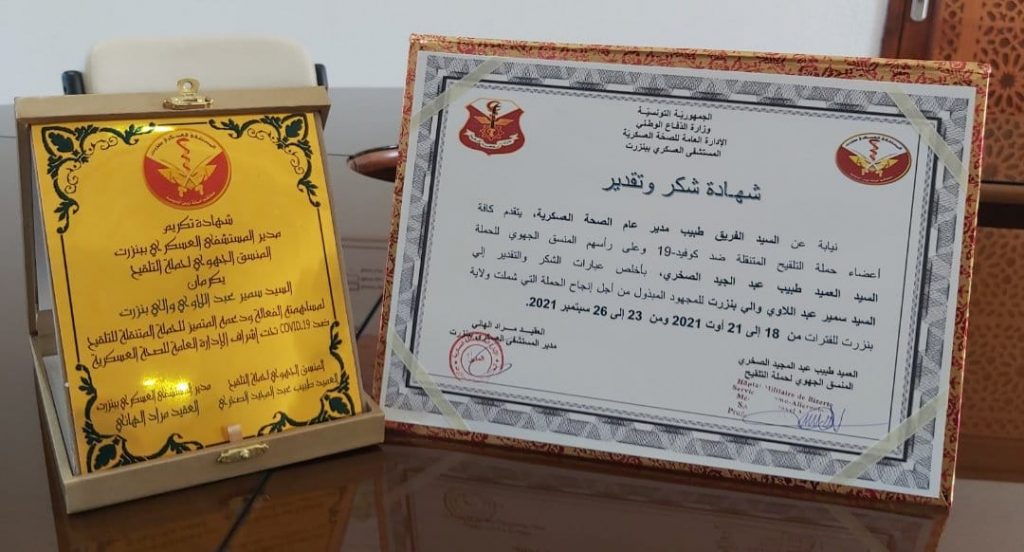 شهادة تكريم
مدير المستشفى العسكري ببنزرت
المنسق الجهوي لحملة التلقيح
يكرمان
السيد سمير عبد اللاوي والي بنزرت
لمساهمته الفعالة ودعمه المتميز للحملة المتنقلة للتلقيح
ضد COVID.19 تحت إشراف الإدارة العامة للصحة العسكرية
المنسق الجهوي لحملة التلقيح
العميد طبيب عبد المجيد الصخري
مدير المستشفى العسكري ببنزرت
العقيد مراد الهاني
الجمهورية التونسية
وزارة الدفاع الوطني
الإدارة العامة للصحة العسكرية
المستشفى العسكري ببنزرت
شهادة شكر وتقدير
نيابة عن السيد الفريق طبيب مدير عام الصحة العسكرية، يتقدم كافة
أعضاء حملة التلقيح المتنقلة ضد كوفيد-19 وعلى رأسهم المنسق الجهوي للحملة
السيد العميد طبيب عبد الجيد الصخري، بأخلص عبارات الشكر والتقدير إلي
السيد سمير عبد اللاوي والي بنزرت للمجهود المبذول من أجل إنجاح الحملة التي شملت ولاية
بنزرت للفترات من 18 إلى 21 أوت 2021 ومن 23 إلى 26 سبتمبر 2021.
العميد طبيب عبد المجيد الصخري
المنسق الجهوي لحملة التلقيح
العقيد مراد الهاني
مدير المستشفى العسكري ببنزرت
Hôpital Militaire de Bizerte